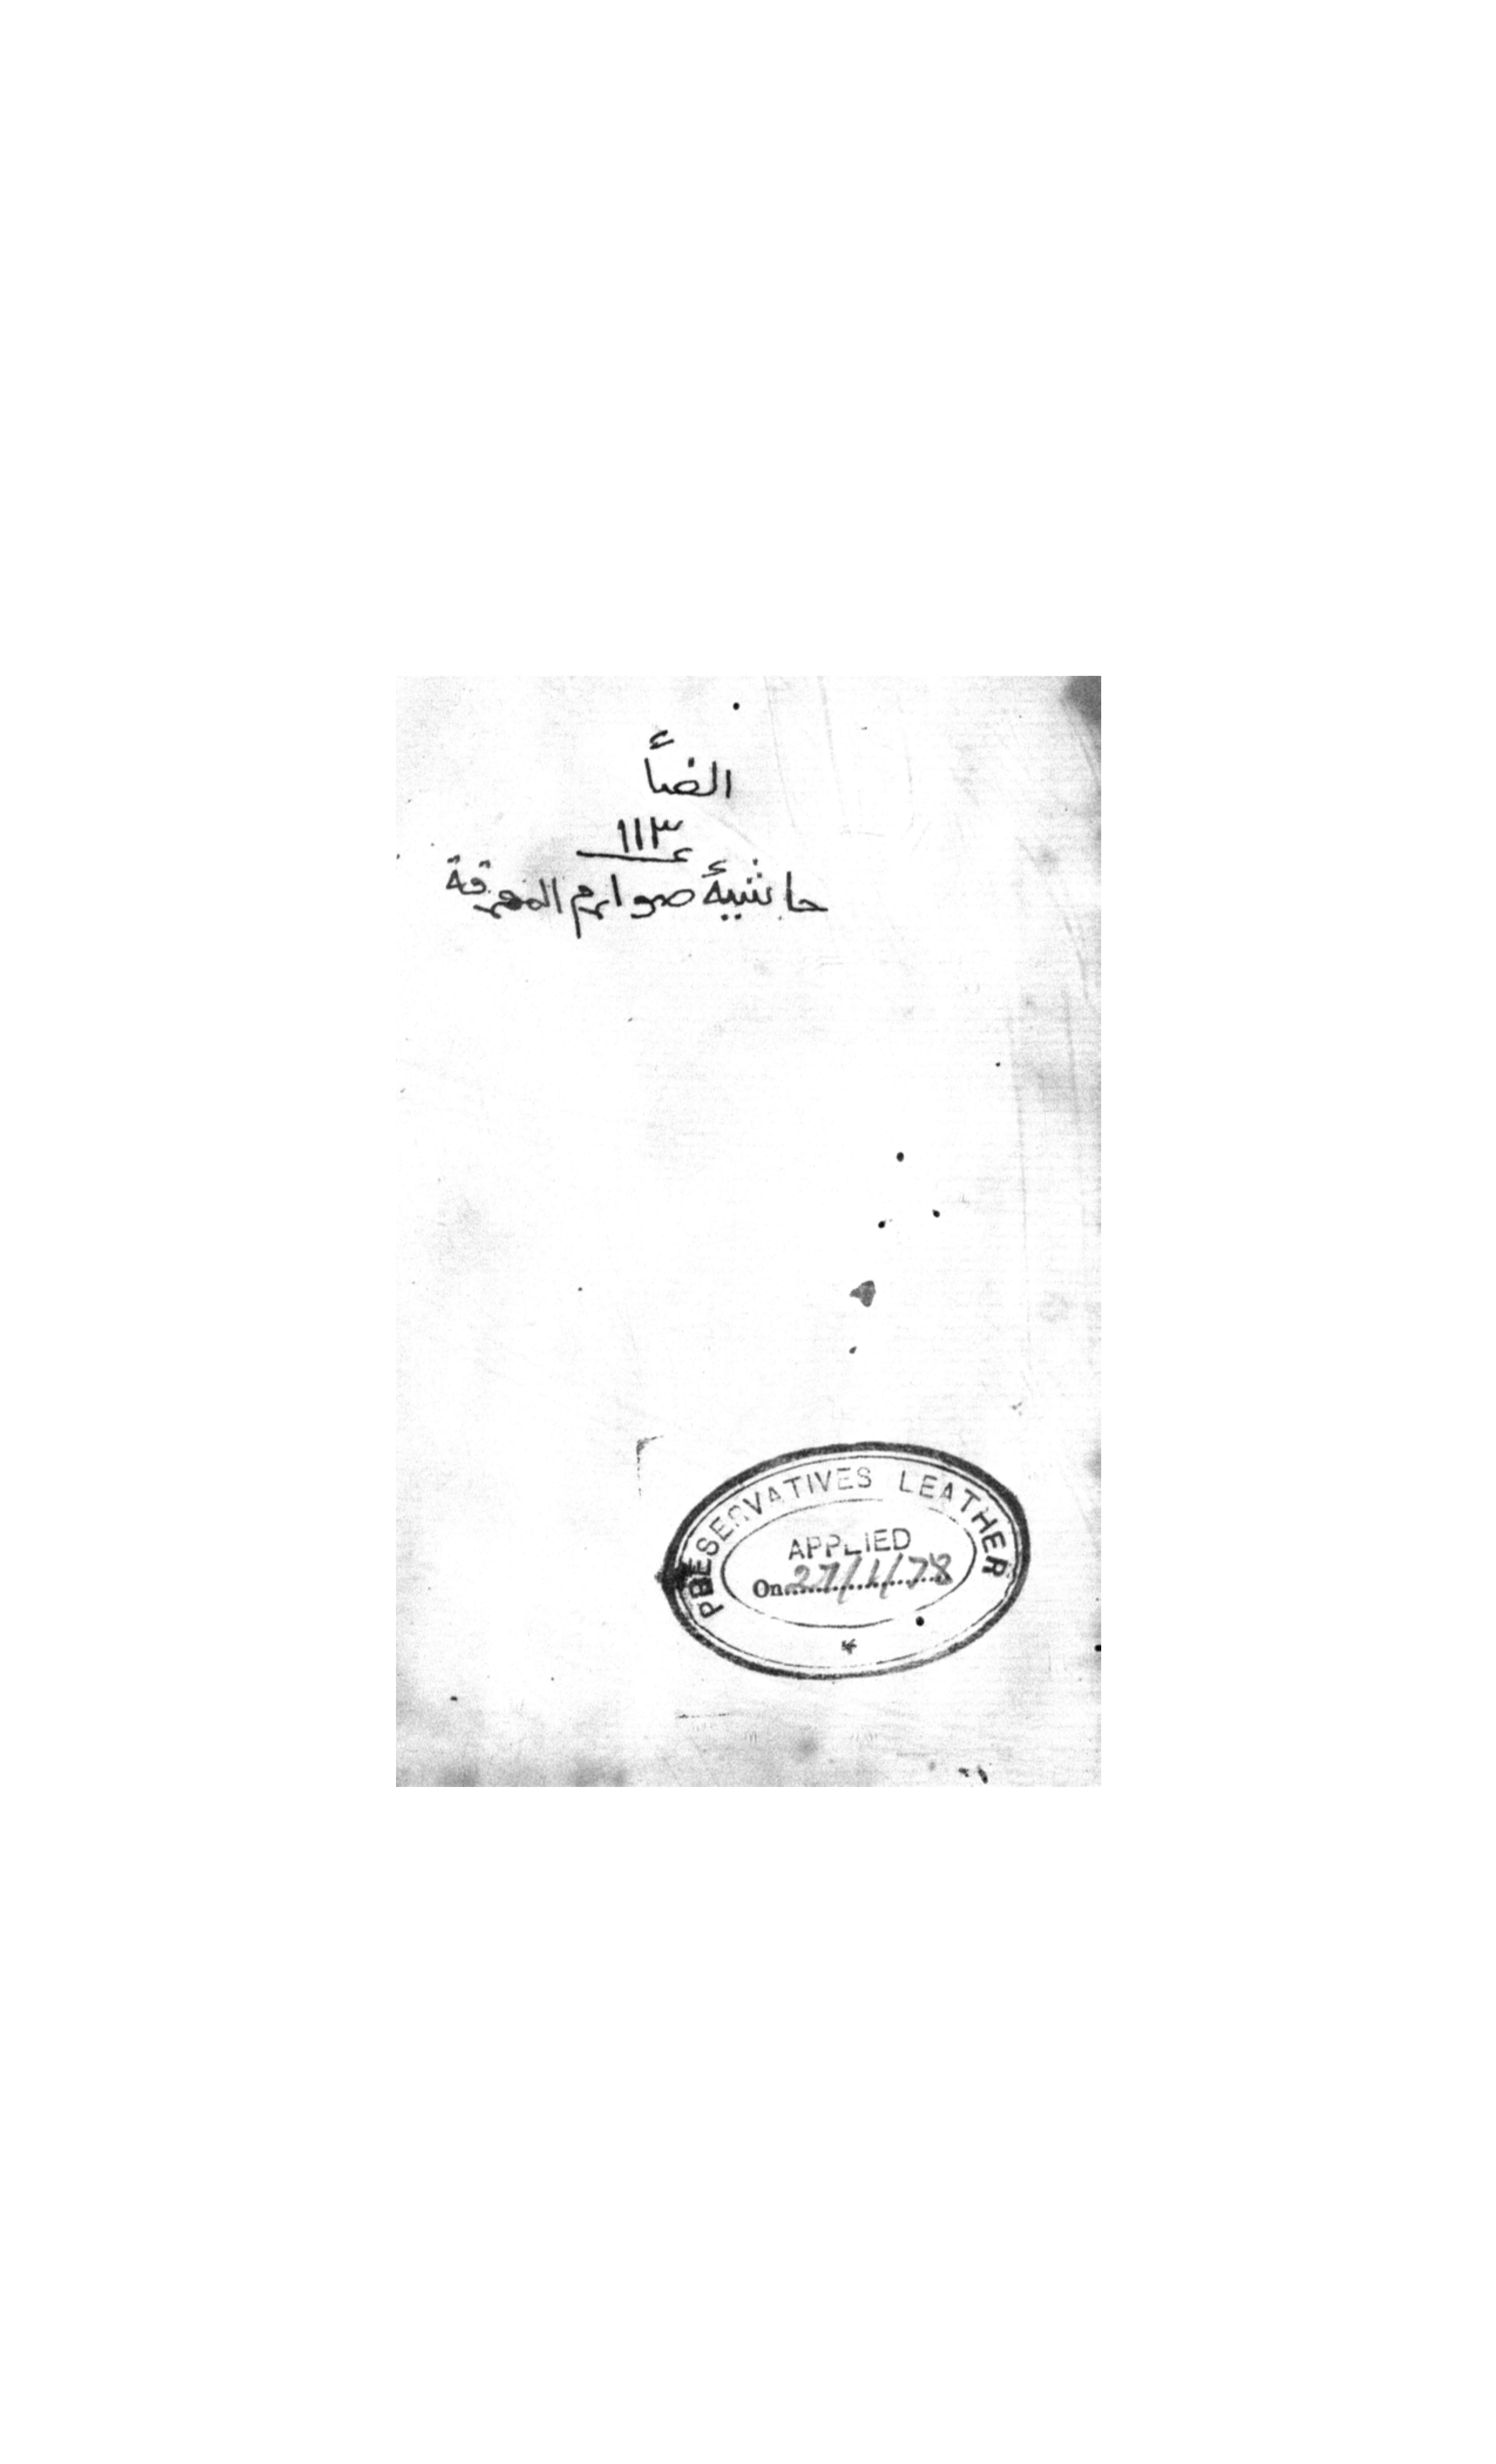 الضأ
١١٣
حاشيهٔ صوارم المحرقة
PRESERVATIVES LEATHER
APPLIED
On 27/1/78